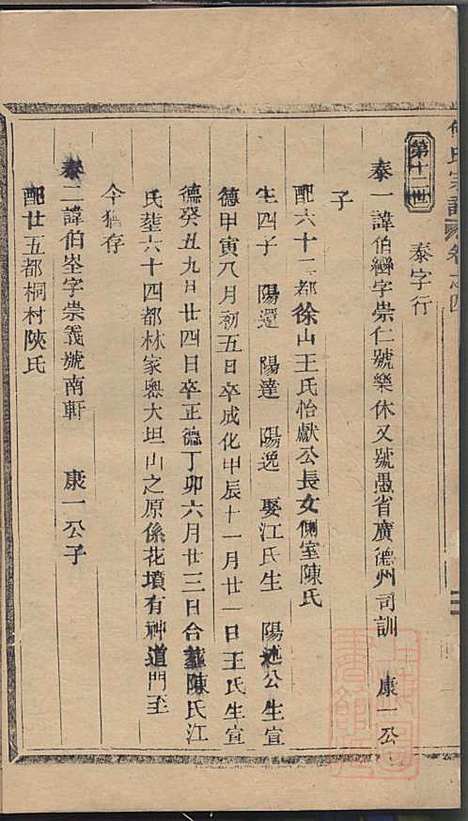 氏宗譜 卷之四
第十二世
泰字行
泰一諱伯巒字崇仁號樂休又號愚省廣德州司訓 康一公
子
配六十二都徐山王氏怡獻公長女側室陳氏
生四子 陽還 陽達 陽逸 娶江氏生 陽 公生宣
德甲寅八月初五日卒成化甲辰十一月廿一日王氏生宣
德癸丑九月廿四日卒正德丁卯六月廿三日合葬陳氏江
氏塟六十四都林家嶴大坦山之原係花墳有神道門至
今猶存
泰二諱伯峑字崇義號南軒 康一公子
配廿五都桐村陝氏